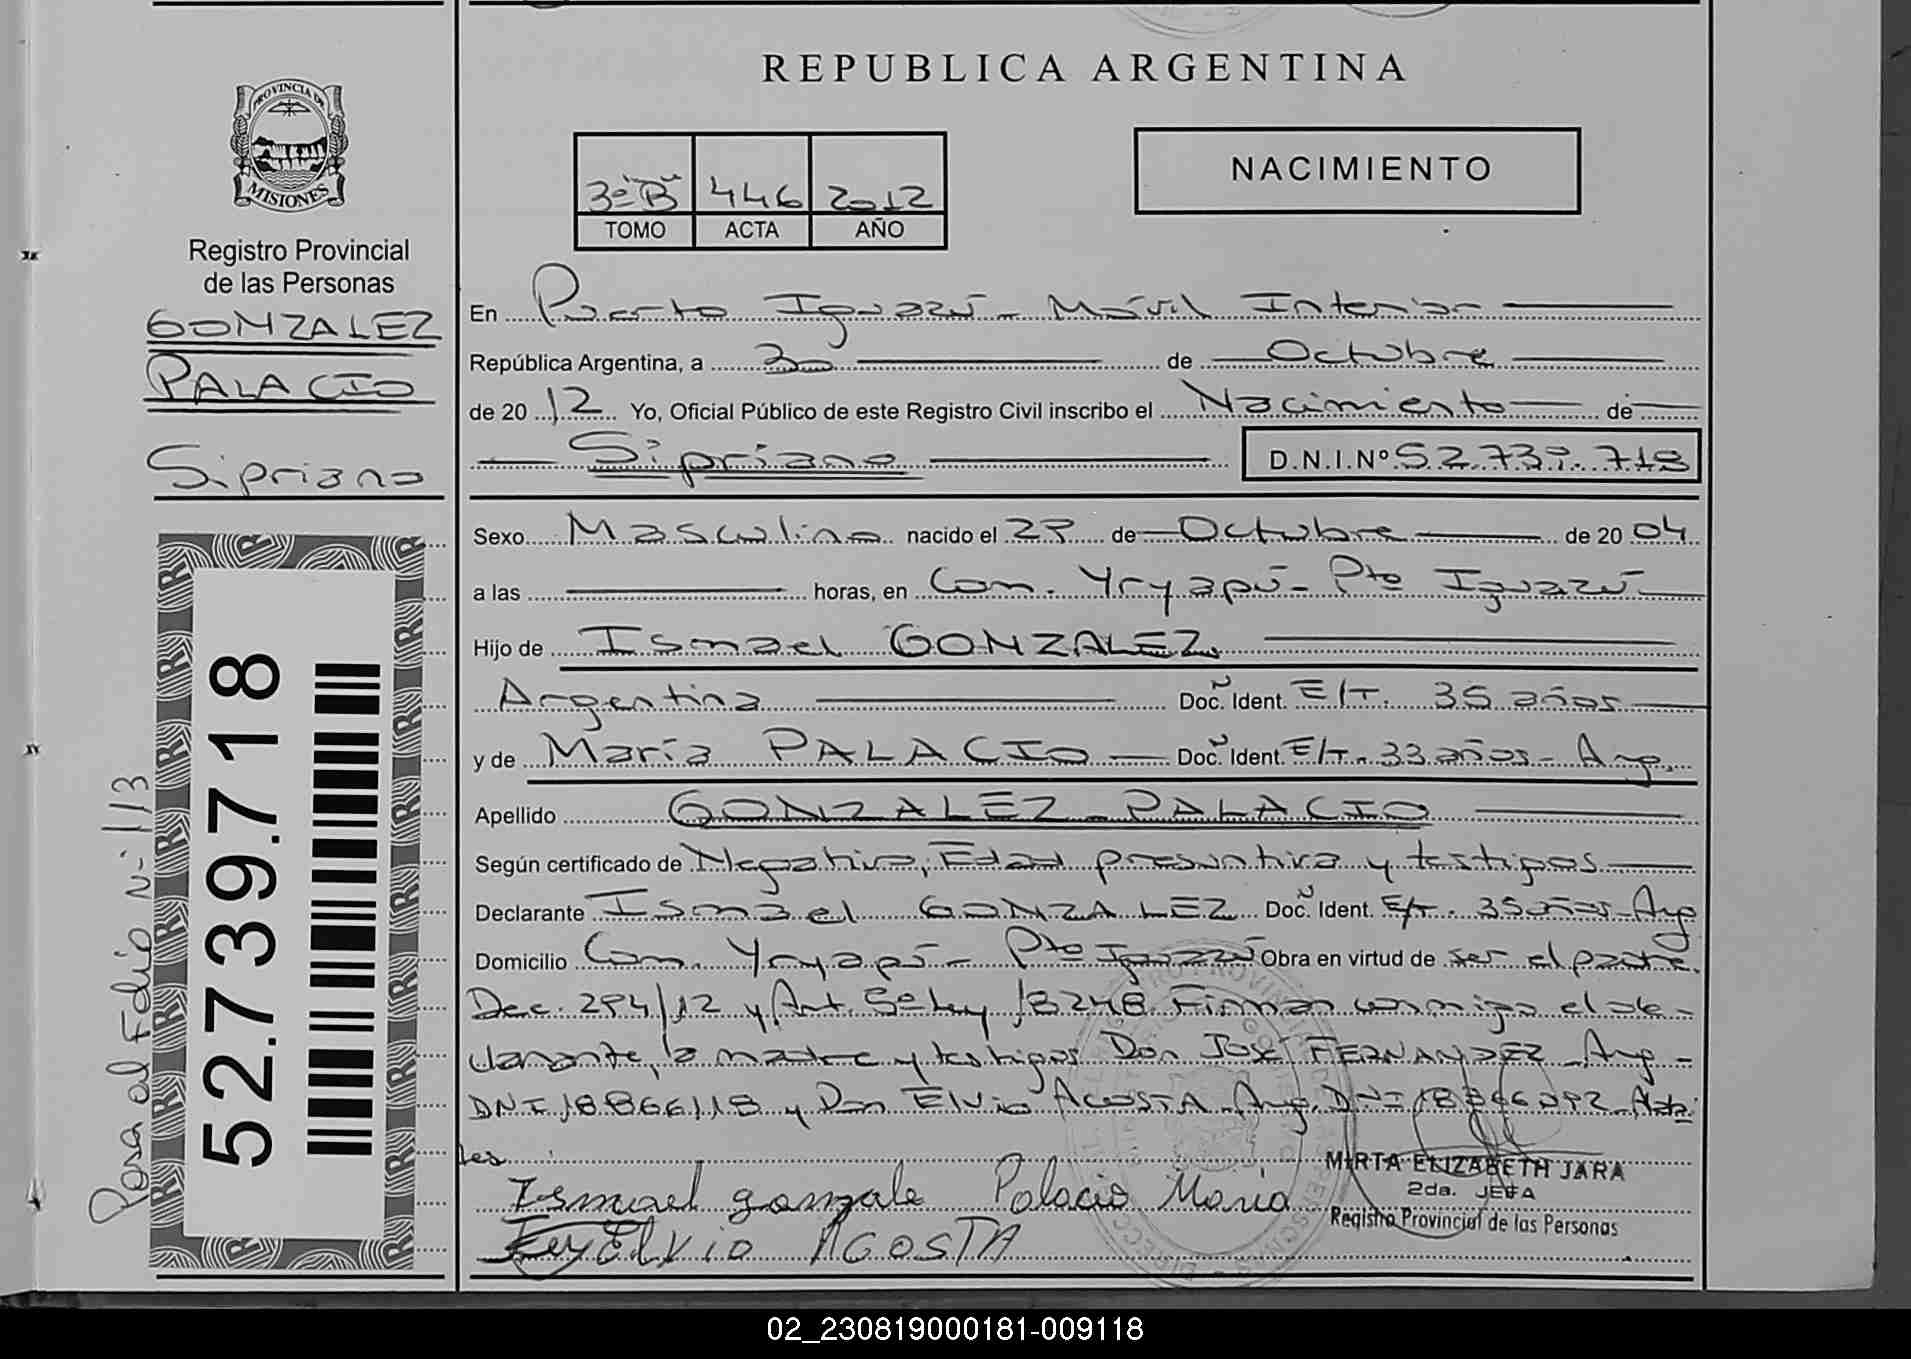 REPUBLICA ARGENTINA
PROVINCIA DE
MISIONES
Registro Provincial
de las Personas
GONZALEZ
PALACIO
Sipriano
52.739.718
Pasa al Folio N- 113
3º "B" 446 2012
TOMO ACTA AÑO
NACIMIENTO
En Puerto Iguazú - Móvil Interior
República Argentina, a 30 de Octubre
de 20 12 Yo, Oficial Público de este Registro Civil inscribo el Nacimiento de
Sipriano D.N.I.Nº 52.739.718
Sexo Masculino nacido el 29 de Octubre de 20 04
a las horas, en Com. Yryapú - Pto Iguazú
Hijo de Ismael GONZALEZ
Argentina Doc. Ident. E/T. 35 años
y de María PALACIO Doc. Ident. E/T. 33 años - Arg.
Apellido GONZALEZ - PALACIO
Según certificado de Negativo, Edad presuntiva y testigos
Declarante Ismael GONZALEZ Doc. Ident. E/T. 35 años - Arg
Domicilio Com. Yryapú - Pto Iguazú Obra en virtud de ser el padre.
Dec. 294/12 y Art. 5º Ley 18248 Firman conmigo el de-
clarante, la madre y testigos Don José FERNANDEZ - Arg -
DNI 18866118 y Don Elvio ACOSTA - Arg. DNI
tes
Ismael gonzale Palacio Maria
Elvio ACOSTA
MIRTA ELIZABETH JARA
2da. JEFA
Registro Provincial de las Personas
02_230819000181-009118